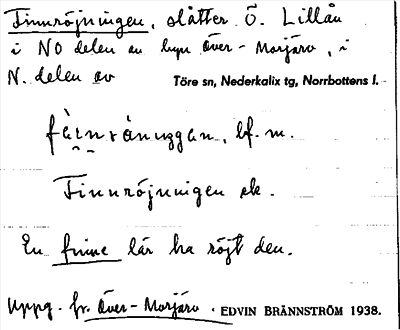 Finnröjningen, slåtter Ö. Lillån
i NO delen av byn Över-Morjärv, i
N. delen av Töre sn, Nederkalix tg, Norrbottens l.
bf. m.
Finnröjningen ek.
En finne lär ha röjt den.
Uppg. fr. Över-Morjärv. EDVIN BRÄNNSTRÖM 1938.